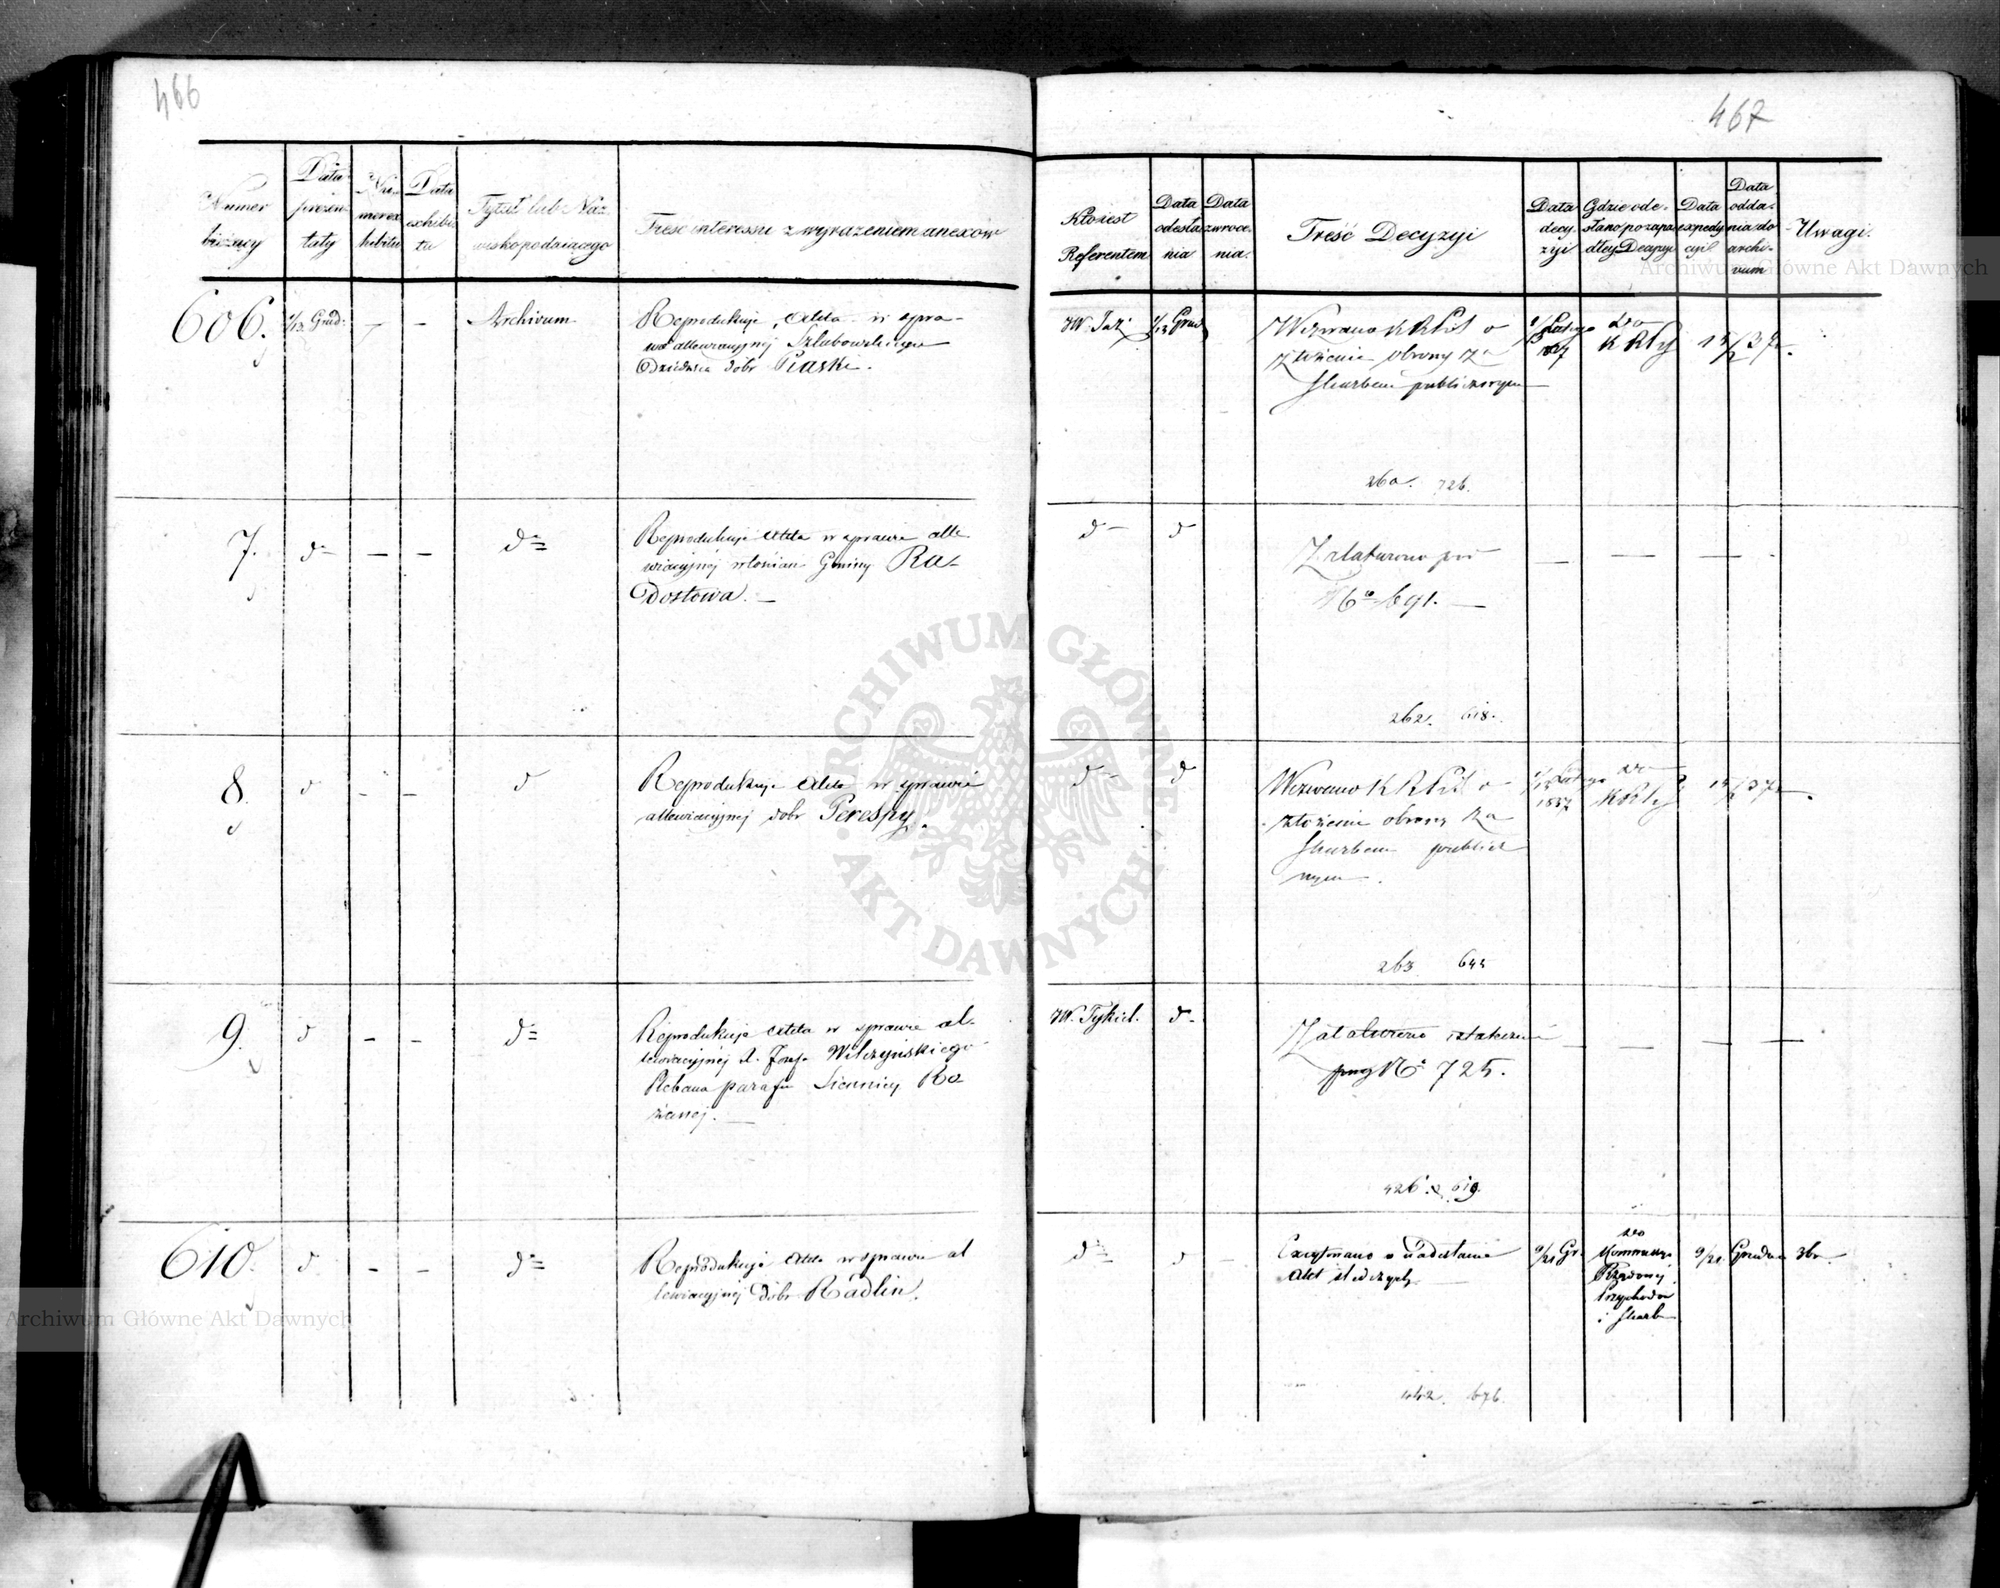 466
Numer bieżący
Data prezentaty
Numer exhibitu
Data exhibitu
Tytuł lub Nazwisko podaiącego
Treść interessu z wyrażeniem anexów
606.
1/13 Grud:
Archivum
Reprodukuje Akta w spra-
wie allewiacyjnej
Dziedzica dóbr Piaski.
7.
d=
d=
Reprodukuje Akta w sprawie alle-
wiacyjnej włościan Gminy Ra-
dostowa. —
8.
d
d
Reprodukuje Akta w sprawie
allewiacyjnej dóbr Perespy.
9.
d
d=
Reprodukuje Akta w sprawie al-
lewiacyjnej X. Józefa Wilczyńskiego
Plebana parafii Siennicy Ró-
żanej. —
610.
d
d=
Reprodukuje Akta w sprawie al
lewiacyjnej dóbr Radlin.
467
Kto iest Referentem
Data odesłania
Data zwrócenia.
Treść Decyzyi
Data decyzyi
Gdzie odesłano po zapadłey Decyzyi
Data expedycyi
Data oddania do archivum
Uwagi.
1/13 Grud
Wezwano K R P i S o
złożenie obrony za
Skarbem publicznym
260. 726.
d
d
Załatwiono pod
No 691. —
262. 618.
d
d
Wezwano K R P i S o
złożenie obrony za
Skarbem publicz
nym.
263
W. Tykiel.
d
Załatwiono
No 725.
426. 619.
d
d
Excytowano o nadesłanie
Akt śledczych
9/21 Gr.
do
Kommissyi
Rządowej
Przychodów
i Skarbu
9/21 Grudnia
442. 676.
ARCHIWUM GŁÓWNE AKT DAWNYCH
Archiwum Główne Akt Dawnych
Archiwum Główne Akt Dawnych